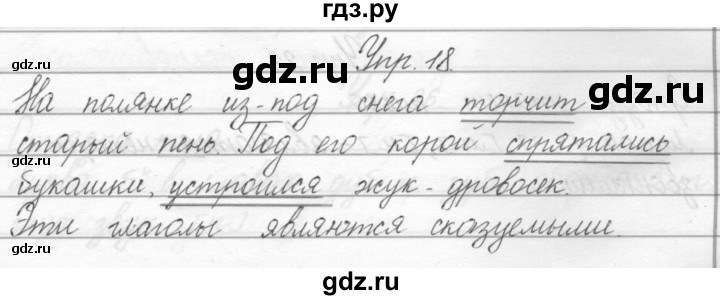 гдз.ру
Упр. 18.
На полянке из-под снега торчит
старый пень. Под его корой спрятались
букашки, устроился жук-дровосек.
Эти глаголы являются сказуемыми.
gdz.ru gdz.ru
gdz.ru gdz.ru
gdz.ru gdz.ru
gdz.ru gdz.ru
gdz.ru